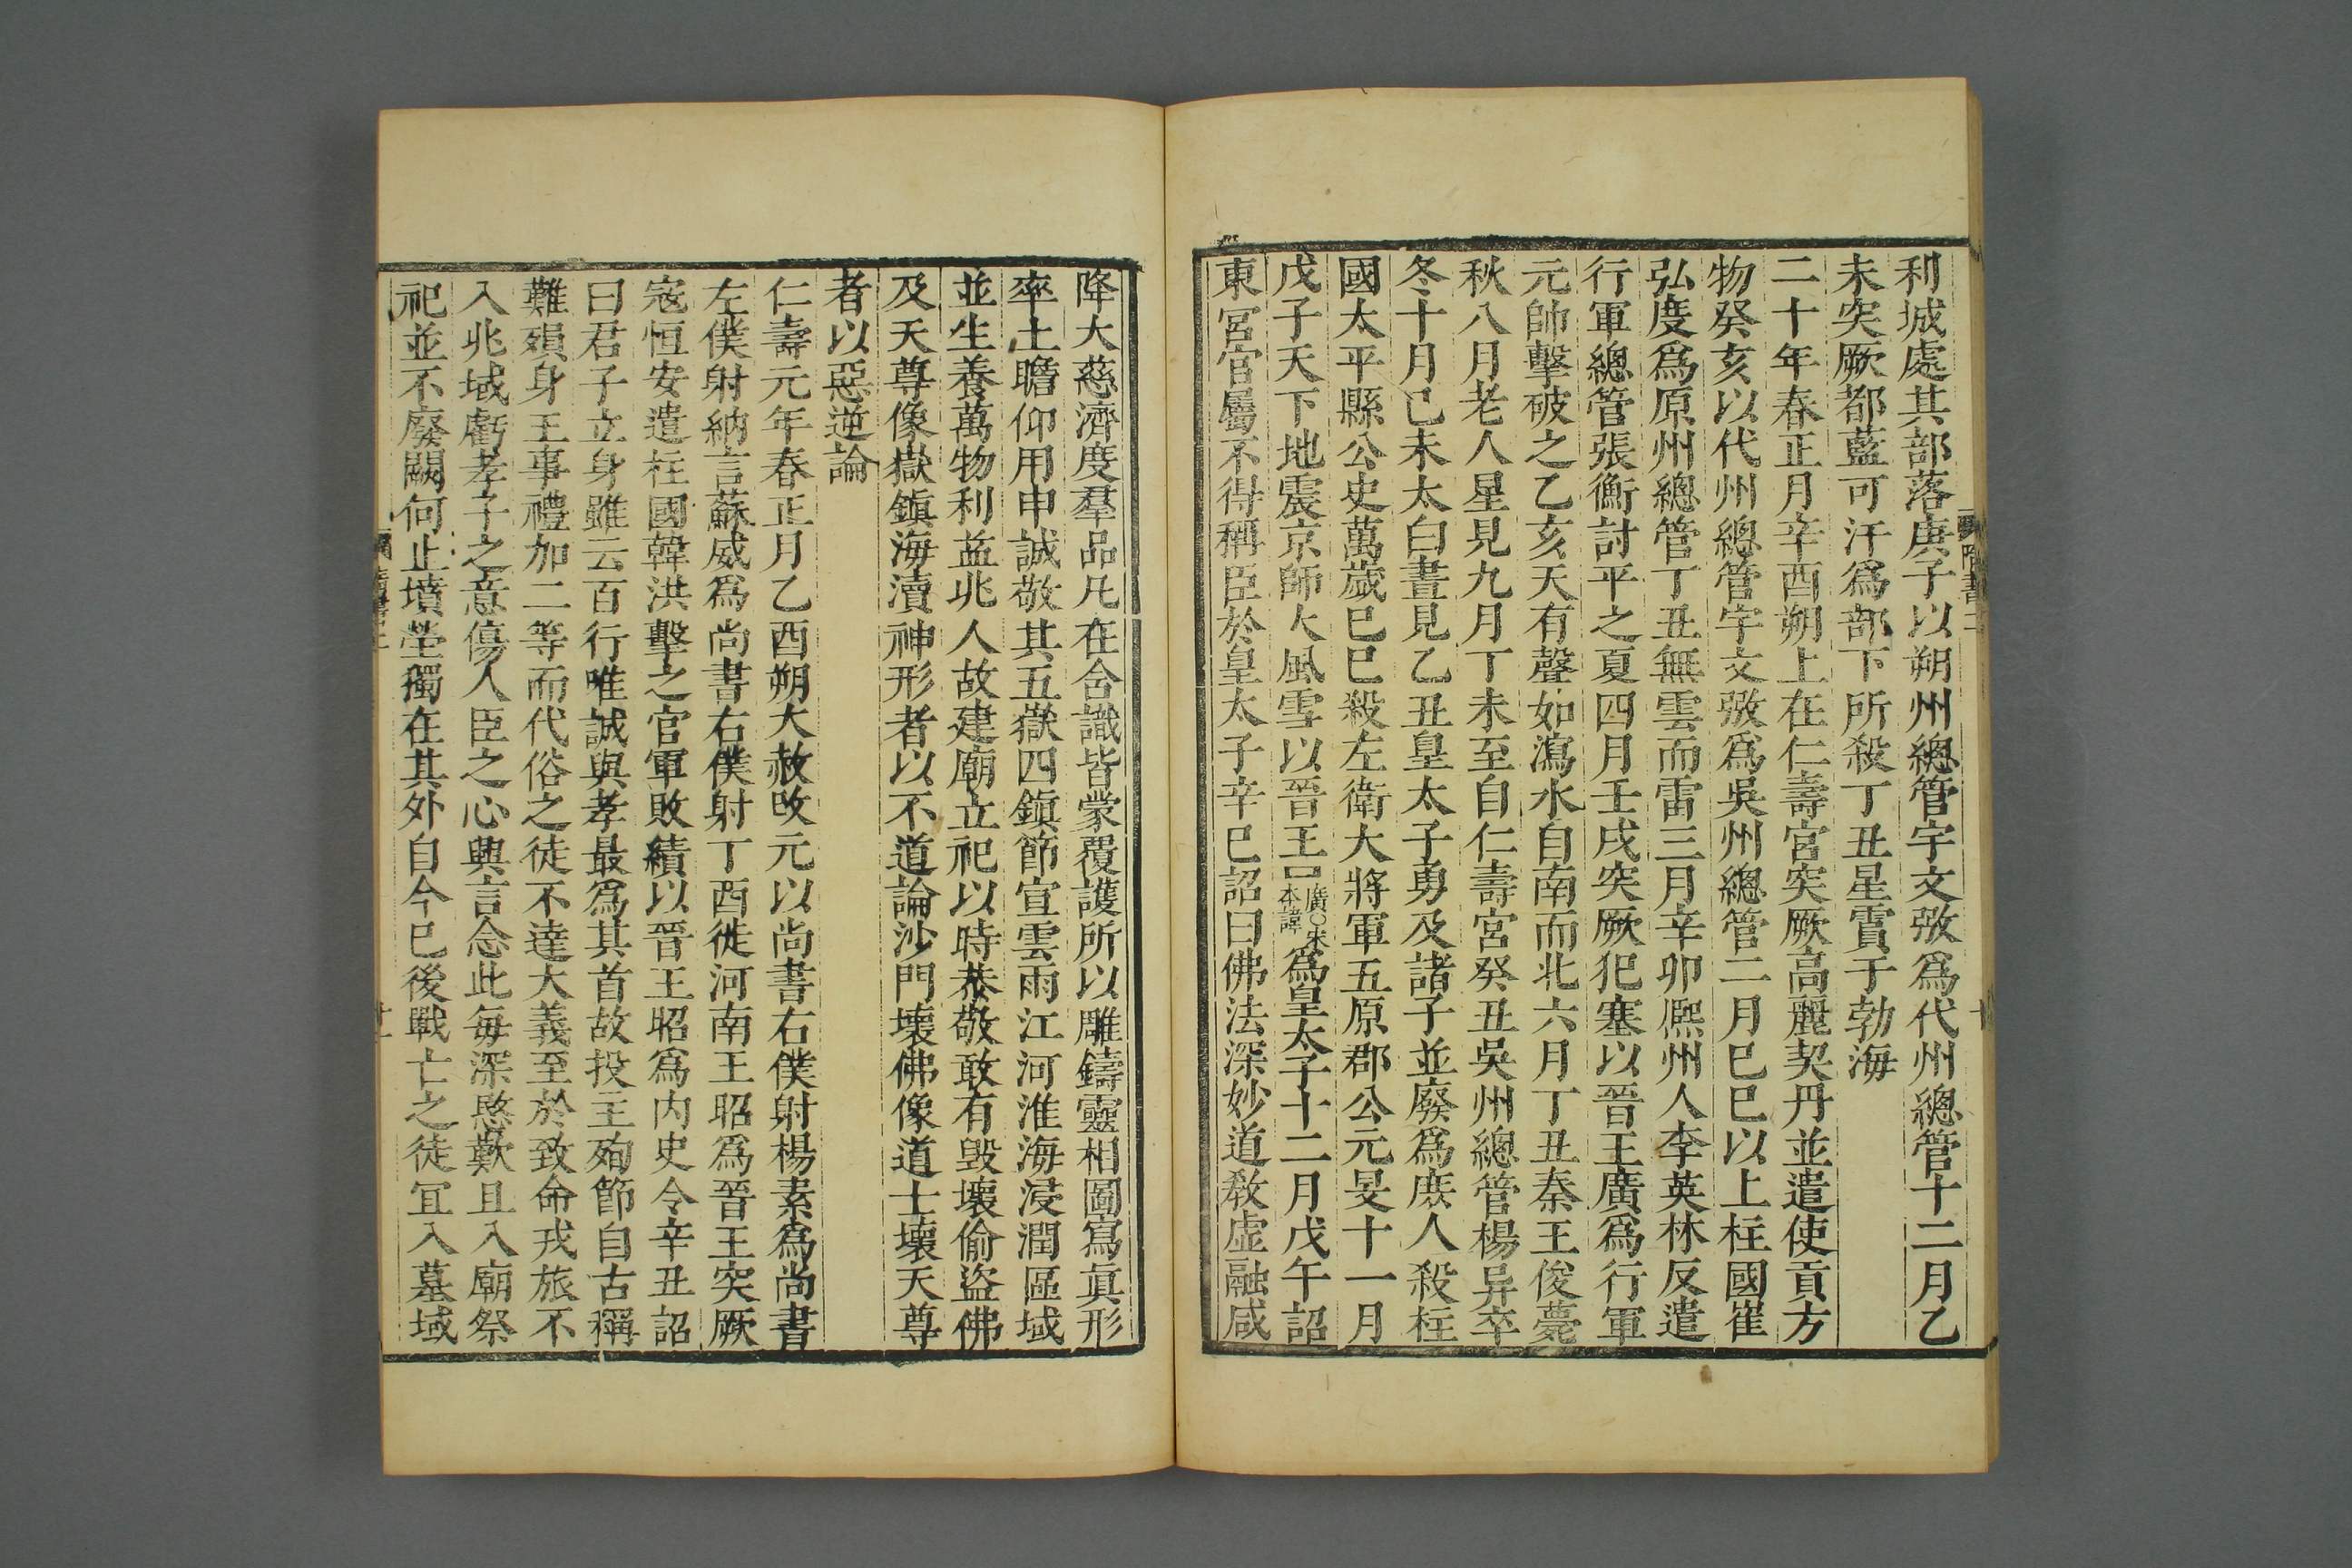 利城處其部落庚子以朔州總管宇文㢸爲代州總管十二月乙
未突厥都藍可汗爲部下所殺丁丑星霣于勃海
二十年春正月辛酉朔上在仁壽宮突厥高麗契丹並遣使貢方
物癸亥以代州總管宇文㢸爲吳州總管二月巳巳以上柱國崔
弘度爲原州總管丁丑無雲而雷三月辛卯熙州人李英林反遣
行軍總管張衡討平之夏四月壬戌突厥犯塞以晉王廣爲行軍
元帥擊破之乙亥天有聲如瀉水自南而北六月丁丑秦王俊薨
秋八月老人星見九月丁未至自仁壽宮癸丑吳州總管楊异卒
冬十月己未太白晝見乙丑皇太子勇及諸子並廢爲庶人殺柱
國太平縣公史萬歲巳巳殺左衛大將軍五原郡公元旻十一月
戊子天下地震京師大風雪以晉王廣○宋本諱爲皇太子十二月戊午詔
東宮官屬不得稱臣於皇太子辛巳詔曰佛法深妙道敎虛融咸
降大慈濟度羣品凡在含識皆蒙覆護所以雕鑄靈相圖寫眞形
率土瞻仰用申誠敬其五嶽四鎭節宣雲雨江河淮海浸潤區域
並生養萬物利益兆人故建廟立祀以時恭敬敢有毀壞偷盜佛
及天尊像嶽鎭海瀆神形者以不道論沙門壞佛像道士壞天尊
者以惡逆論
仁壽元年春正月乙酉朔大赦改元以尚書右僕射楊素爲尚書
左僕射納言蘇威爲尚書右僕射丁酉徙河南王昭爲晉王突厥
寇恒安遣柱國韓洪擊之官軍敗績以晉王昭爲内史令辛丑詔
曰君子立身雖云百行唯誠與孝最爲其首故投主殉節自古稱
難殞身王事禮加二等而代俗之徒不達大義至於致命戎旅不
入兆域虧孝子之意傷人臣之心興言念此每深愍歎且入廟祭
祀並不廢闕何止墳塋獨在其外自今巳後戰亡之徒宜入墓域